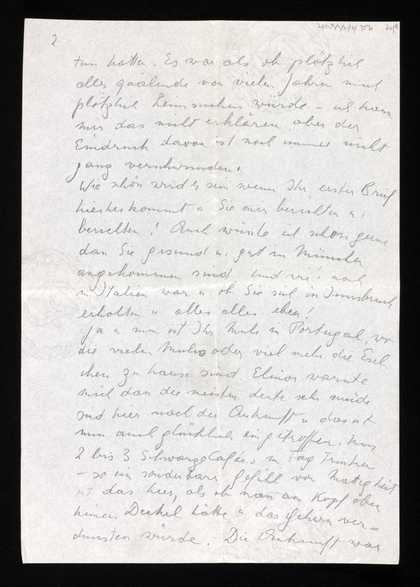 2
tun hatten. Es war als ob plötzlich
alles quälende von vielen Jahren mich
plötzlich heimsuchen würde – ich kann
mir das nicht erklären aber der
Eindruck davon ist noch immer nicht
ganz verschwunden.
Wie schön wird es sein wenn Ihr erster Brief
hierherkommt u. Sie mir berichten u.
berichten! Auch wüsste ich schon gerne
dass Sie gesund u. gut in München
angekommen sind und wie's noch
in Italien war u. ob Sie sich in Innsbruck
erholten u. alles alles eben!
Ja u. nun ist Ihr in Portugal, wo
die vielen oder viel mehr die Esel
chen zu hause sind. Elinor warnte
mich dass die meisten Leute sehr müde
sind hier nach der Ankunft u. das ist
nun auch glücklich eingetroffen. Muss
2 bis 3 Schwarze Kaffees im Tag trinken
– so ein sonderbares Gefühl von Mattigkeit
ist das hier, als ob man am Kopf oben
keinen Deckel hätte u. das Gehirn ver-
dunsten würde. Die Ankunft war